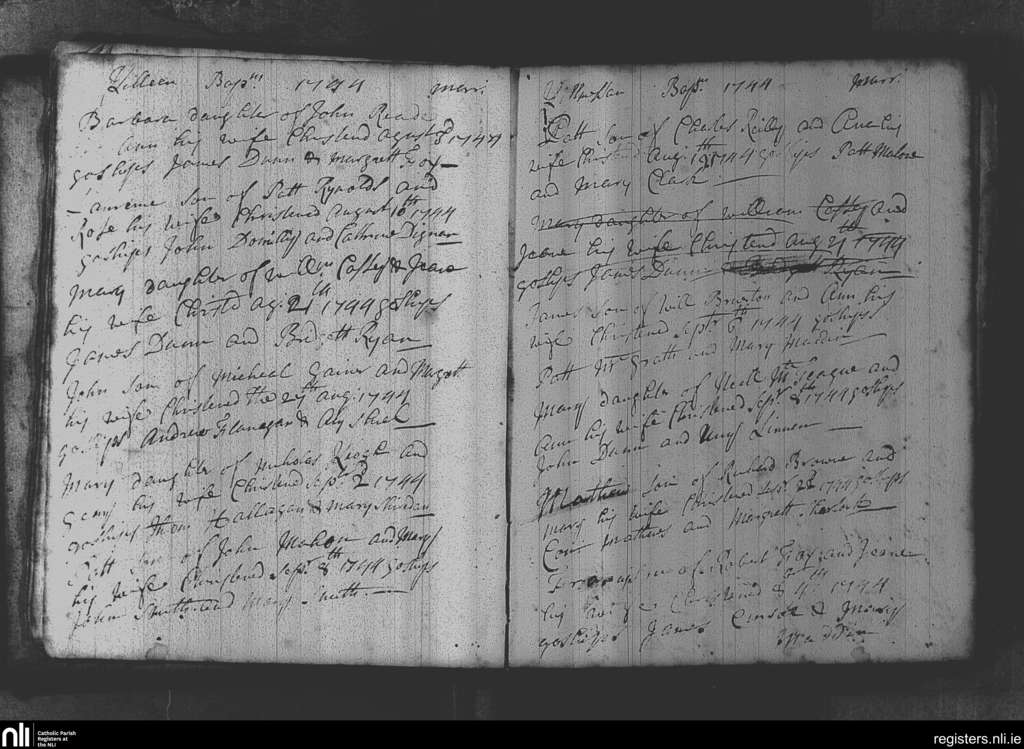 Killeen Bapms 1744 Marr.
Barbara daughter of John Reade
Ann his wife Christend Agust 8d 1744
goships James Dunn & Margrett Foy
Laurence son of Patt Rynolds and
Rose his wife Christened August 16th 1744
goships John Donilly and Catherine Dignan
Mary daughter of willm Costly & Jeane
his wife Christd Ag. 21th 1744 goships
James Dunn and Bridgett Ryan
John Son of Micheal Gainer and Margrett
his wife Christened the 29th aug. 1744
goships Andrew Flanagan & Aly Shiel
Mary daughter of Nicholas Keogh and
his wife Christened Sept. 2d 1744
goships Thom Hallagan & Mary Shiridan
Patt Son of John Mahon and Mary
his wife Christened Sept. 8th 1744 goships
John Smith and Mary Smith.
Bapt. 1744 Marr.
Patt Son of Charles Reilly and Ann his
wife Christend Aug. 19th 1744 goships Patt Malone
and Mary Clark.
Mary daughter of william Costly and
Jeane his wife Christend Aug 21th 1744
goships James Dunn Ryan
James Son of Will Bruxton and Ann his
wife Christened Septr. 6th 1744 goships
Patt Mc Grath and Mary Madden
Mary daughter of Neele Mc Teague and
Ann his wife Christened Sept. 8th 1744 goships
John Dunn and Linnen
Mathew Son of Richard Browne and
Mary his wife Christened Sept. 22d 1744 goships
Edw Mathews and Margrett
Son of Robert Foy and Jeane
his wife Christened 8br 4th 1744
goships James Cusock & Mary
Madden
nli
Catholic Parish
Registers at
the NLI
registers.nli.ie